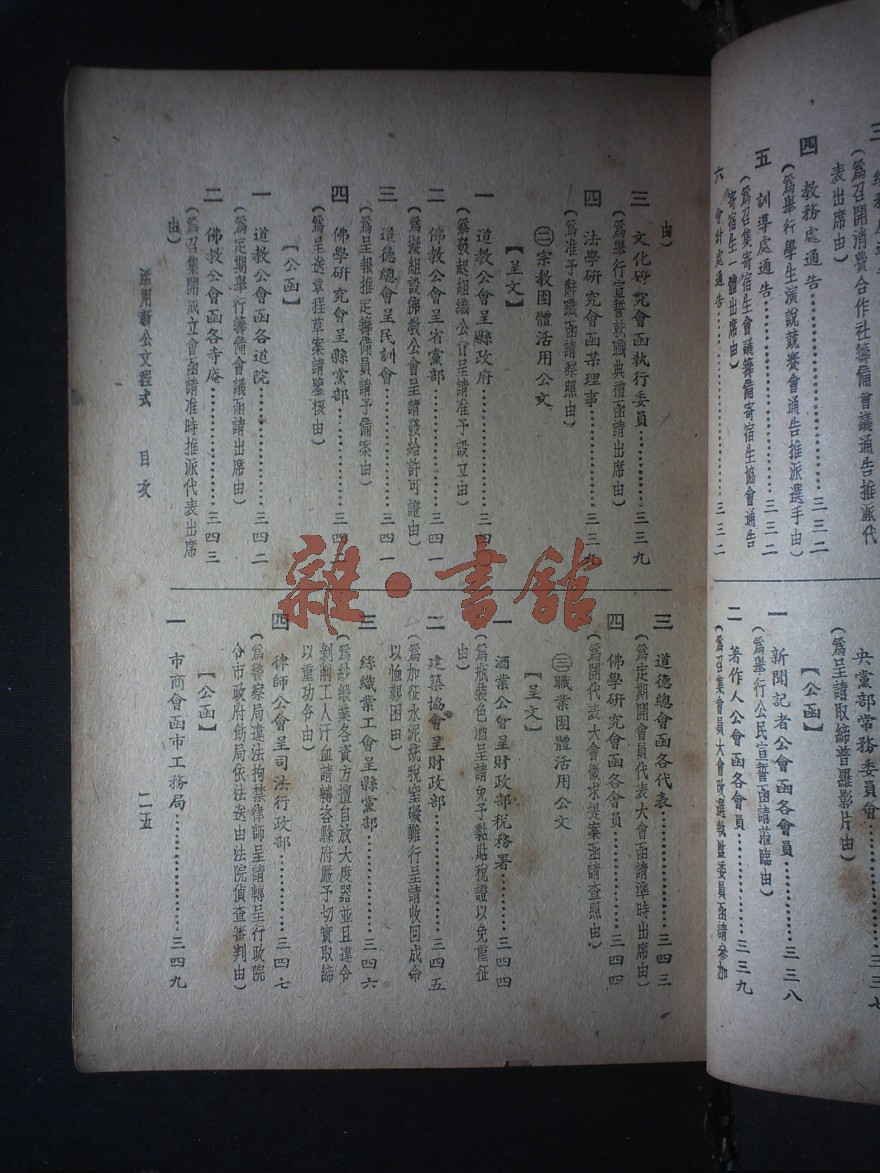 表出席由)
四 教務處通告……………三三二
(爲舉行學生演說競賽會通告推派選手由)
五 訓導處通告……………三三二
(爲召集寄宿生會議籌備寄宿生協會通告
寄宿生一體出席由)
六 會計處通告……………三三二
央黨部常務委員會……………三三七
(爲呈請取締普羅影片由)
【公函】
一 新聞記者公會函各會員……………三三八
(爲舉行公民宣誓函請蒞臨由)
二 著作人公會函各會員……………三三九
(爲召集會員大會改選執監委員函請參加
由)
三 文化研究會函執行委員……………三三九
(爲舉行宣誓就職典禮函請出席由)
四 法學研究會函某理事……………三三九
(爲准予辭職函請察照由)
㊁宗教團體活用公文
【呈文】
一 道教公會呈縣政府……………三四〇
(爲發起組織公會呈請准予設立由)
二 佛教公會呈省黨部……………三四一
(爲擬組設佛教公會呈請發給許可證由)
三 道德總會呈民訓會……………三四一
(爲呈報推定籌備員請予備案由)
四 佛學研究會呈縣黨部……………三四二
(爲呈送章程草案請鑒核由)
【公函】
一 道教公會函各道院……………三四二
(爲定期舉行籌備會議函請出席由)
二 佛教公會函各寺庵……………三四三
(爲召集開成立會函請准時推派代表出席
由)
三 道德總會函各代表……………三四三
(爲定期開會員代表大會函請準時出席由)
四 佛學研究會函各會員……………三四四
(爲開代表大會徵求提案函請查照由)
㊂職業團體活用公文
【呈文】
一 酒業公會呈財政部稅務署……………三四四
(爲瓶裝色酒呈請免予黏貼稅證以免重征
由)
二 建築協會呈財政部……………三四五
(爲加征水泥統稅窒礙難行呈請收回成命
以恤艱困由)
三 絲織業工會呈縣黨部……………三四六
(爲紗緞業各資方擅自放大度器並且違令
剝削工人汗血請轉咨縣府嚴予切實取締
以重功令由)
四 律師公會呈司法行政部……………三四七
(爲警察局違法拘禁律師呈請轉呈行政院
令市政府飭局依法送由法院偵查審判由)
【公函】
一 市商會函市工務局……………三四九
活用新公文程式 目次 二五
雜·書館